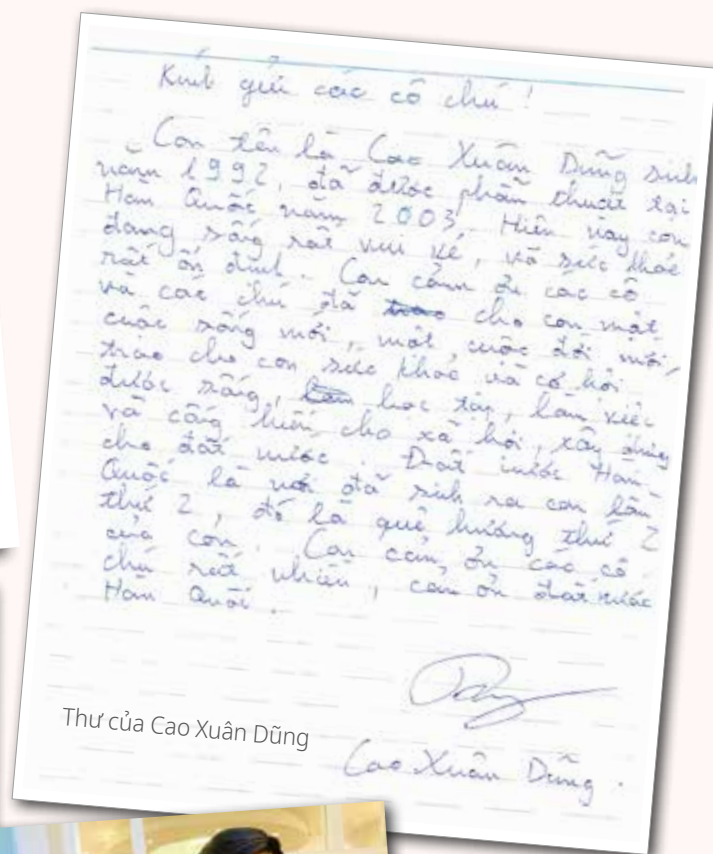 Kính gửi các cô chú !
Con tên là Cao Xuân Dũng sinh
năm 1992, đã được phẫu thuật tại
Hàn Quốc năm 2003. Hiện nay con
đang sống rất vui vẻ, và sức khoẻ
rất ổn định. Con cảm ơn các cô
và các chú đã trao cho con một
cuộc sống mới, một cuộc đời mới,
trao cho con sức khoẻ và cơ hội
được sống, học tập, làm việc
và cống hiến cho xã hội, xây dựng
cho đất nước. Đất nước Hàn
Quốc là nơi đã sinh ra con lần
thứ 2, đó là quê hương thứ 2
của con. Con cảm ơn các cô
chú rất nhiều, cảm ơn đất nước
Hàn Quốc.
Thư của Cao Xuân Dũng
Cao Xuân Dũng.